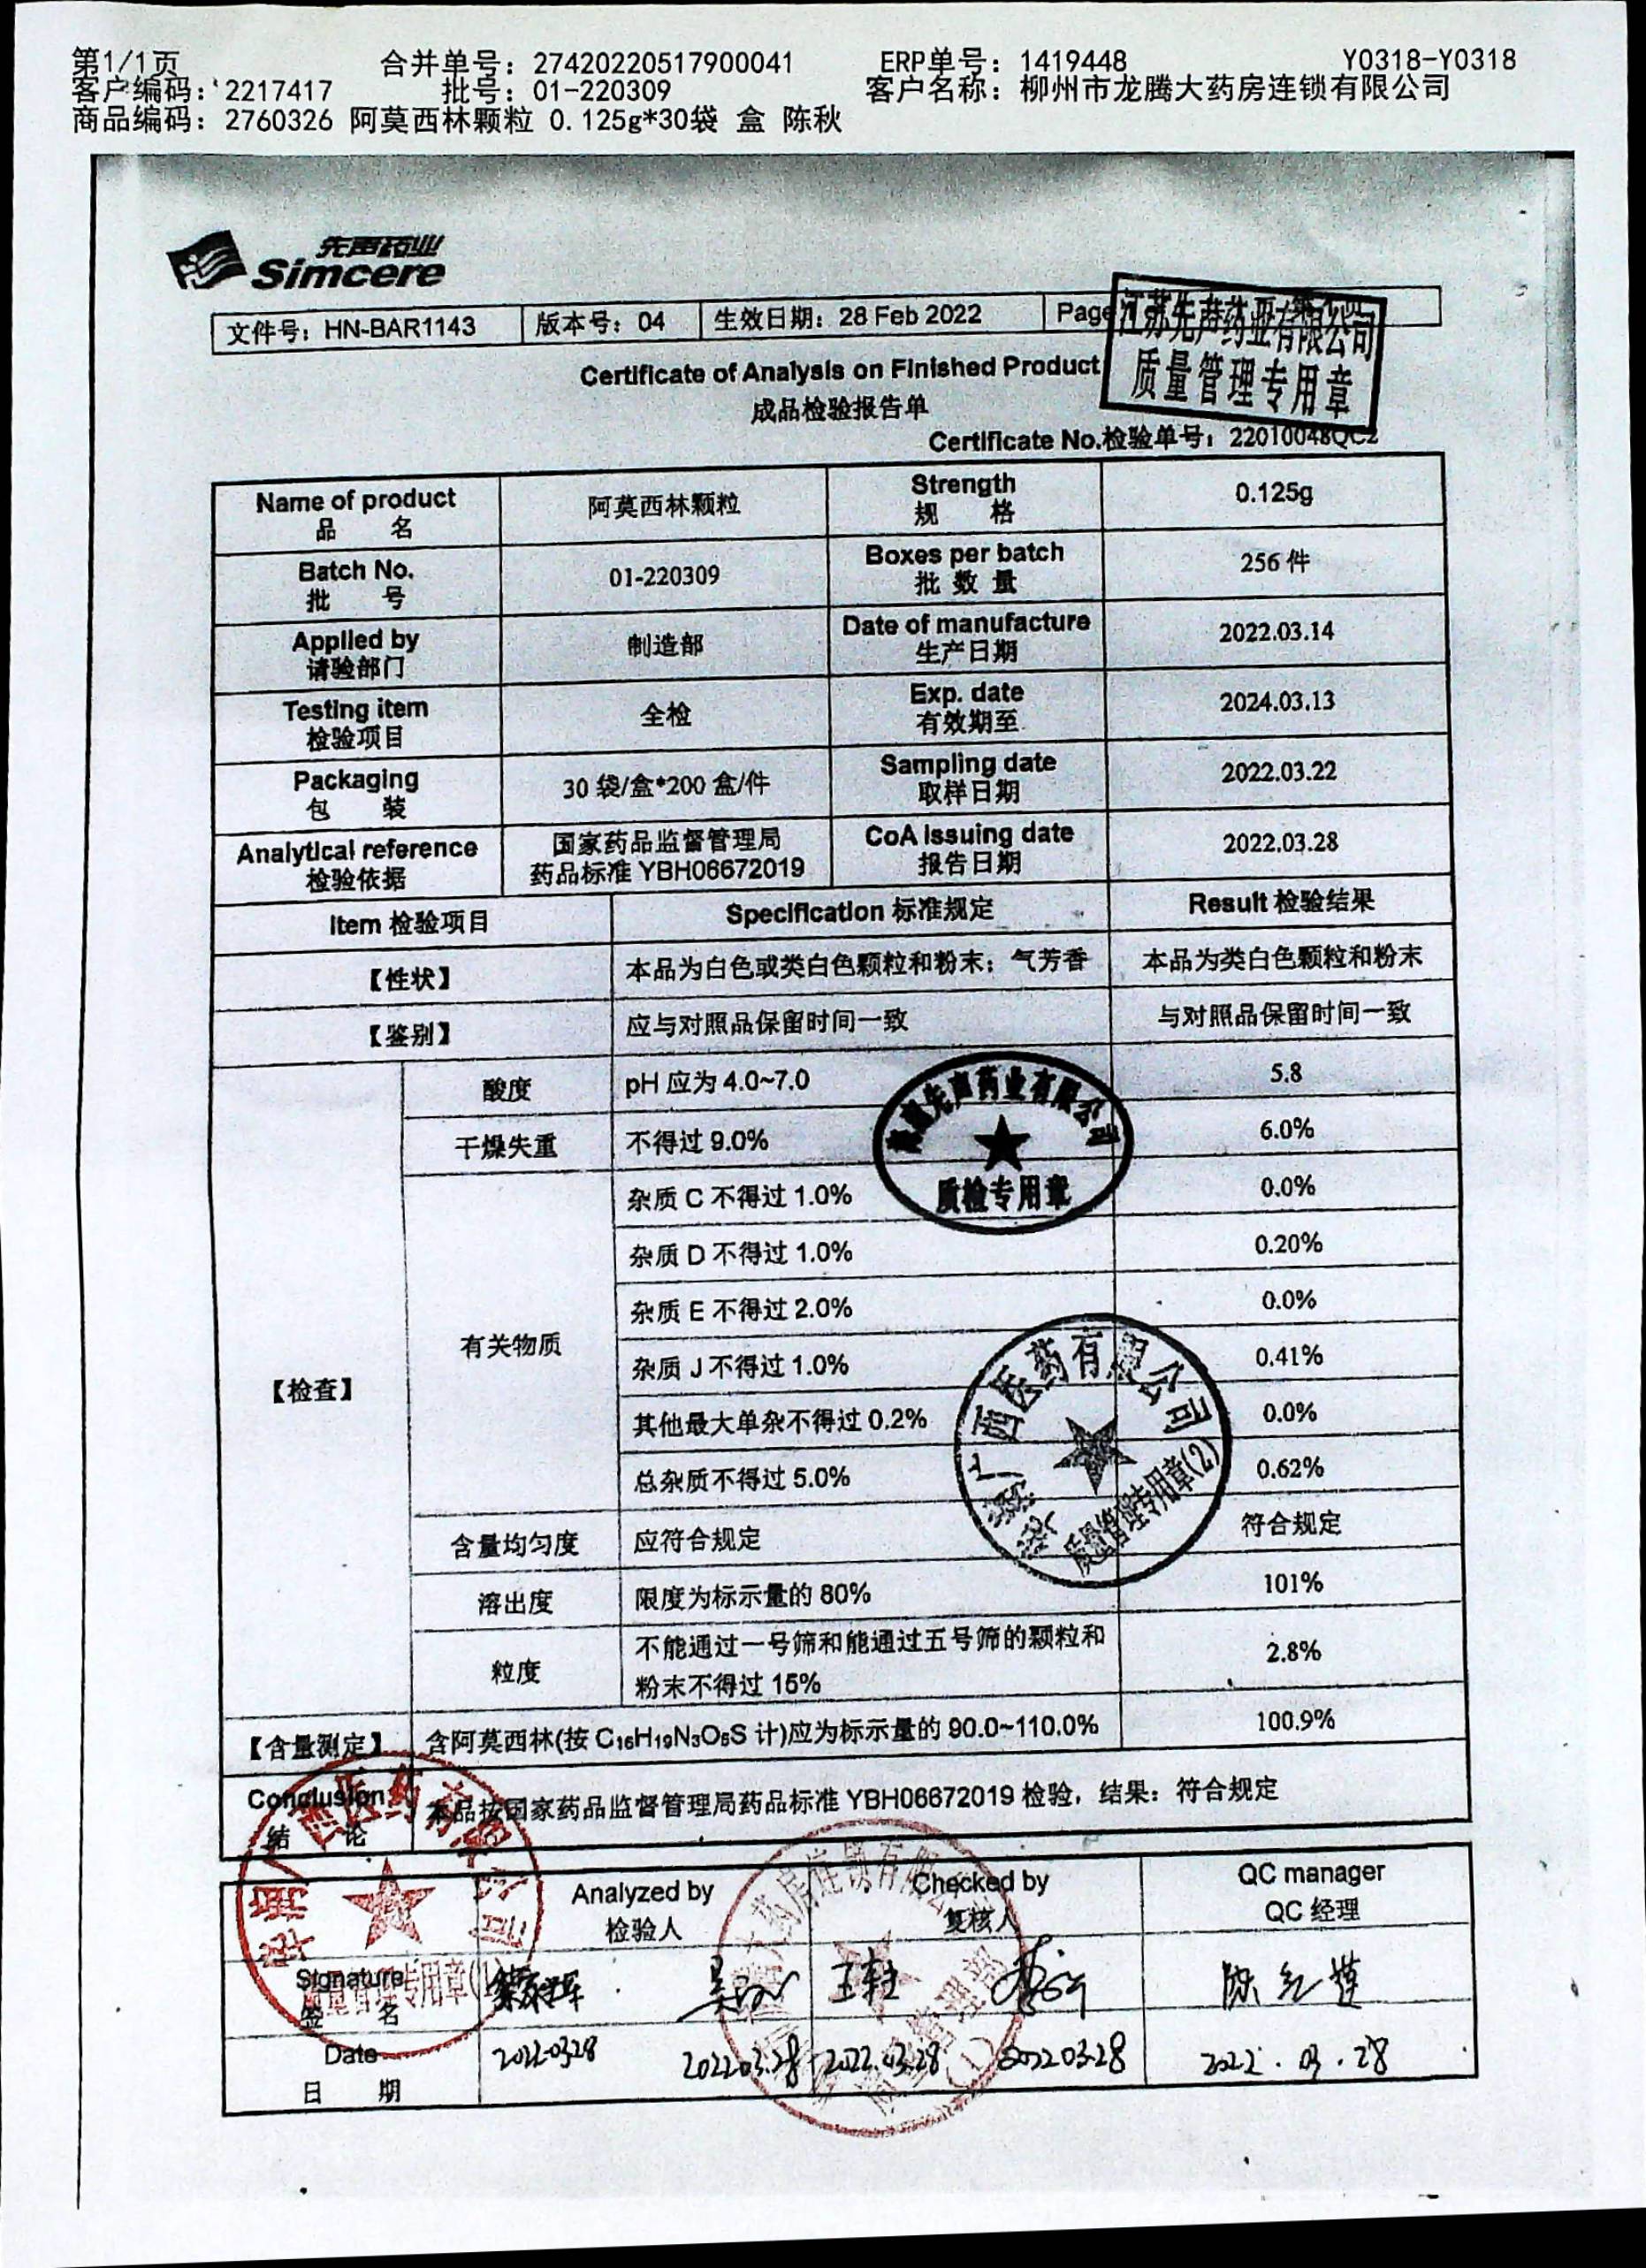 第1/1页 合并单号：27420220517900041 ERP单号：1419448 Y0318-Y0318
客户编码：2217417 批号：01-220309 客户名称：柳州市龙腾大药房连锁有限公司
商品编码：2760326 阿莫西林颗粒 0.125g*30袋 盒 陈秋
先声药业
Simcere
文件号：HN-BAR1143 版本号：04 生效日期：28 Feb 2022 Page
江苏先声药业有限公司
质量管理专用章
Certificate of Analysis on Finished Product
成品检验报告单
Certificate No.检验单号：22010048QC2
Name of product 阿莫西林颗粒 Strength 0.125g
品 名 规 格
Batch No. 01-220309 Boxes per batch 256 件
批 号 批 数 量
Applied by 制造部 Date of manufacture 2022.03.14
请验部门 生产日期
Testing item 全检 Exp. date 2024.03.13
检验项目 有效期至
Packaging 30 袋/盒*200 盒/件 Sampling date 2022.03.22
包 装 取样日期
Analytical reference 国家药品监督管理局 CoA issuing date 2022.03.28
检验依据 药品标准 YBH06672019 报告日期
Item 检验项目 Specification 标准规定 Result 检验结果
【性状】 本品为白色或类白色颗粒和粉末；气芳香 本品为类白色颗粒和粉末
【鉴别】 应与对照品保留时间一致 与对照品保留时间一致
酸度 pH 应为 4.0~7.0 5.8
干燥失重 不得过 9.0% 6.0%
先声药业有限公司
质检专用章
杂质 C 不得过 1.0% 0.0%
杂质 D 不得过 1.0% 0.20%
杂质 E 不得过 2.0% 0.0%
有关物质 杂质 J 不得过 1.0% 0.41%
【检查】 其他最大单杂不得过 0.2% 0.0%
总杂质不得过 5.0% 0.62%
广西医药有限公司
质量管理专用章(2)
含量均匀度 应符合规定 符合规定
溶出度 限度为标示量的 80% 101%
粒度 不能通过一号筛和能通过五号筛的颗粒和 2.8%
粉末不得过 15%
【含量测定】 含阿莫西林(按 C₁₆H₁₉N₃O₅S 计)应为标示量的 90.0~110.0% 100.9%
Conclusion 本品按国家药品监督管理局药品标准 YBH06672019 检验，结果：符合规定
结 论
Analyzed by Checked by QC manager
检验人 复核人 QC 经理
Signature 王轩 陈红莲
签 名
质量管理专用章(1)
Date 2022.03.28 2022.03.28 2022.03.28 2022.03.28 2022.03.28
日 期